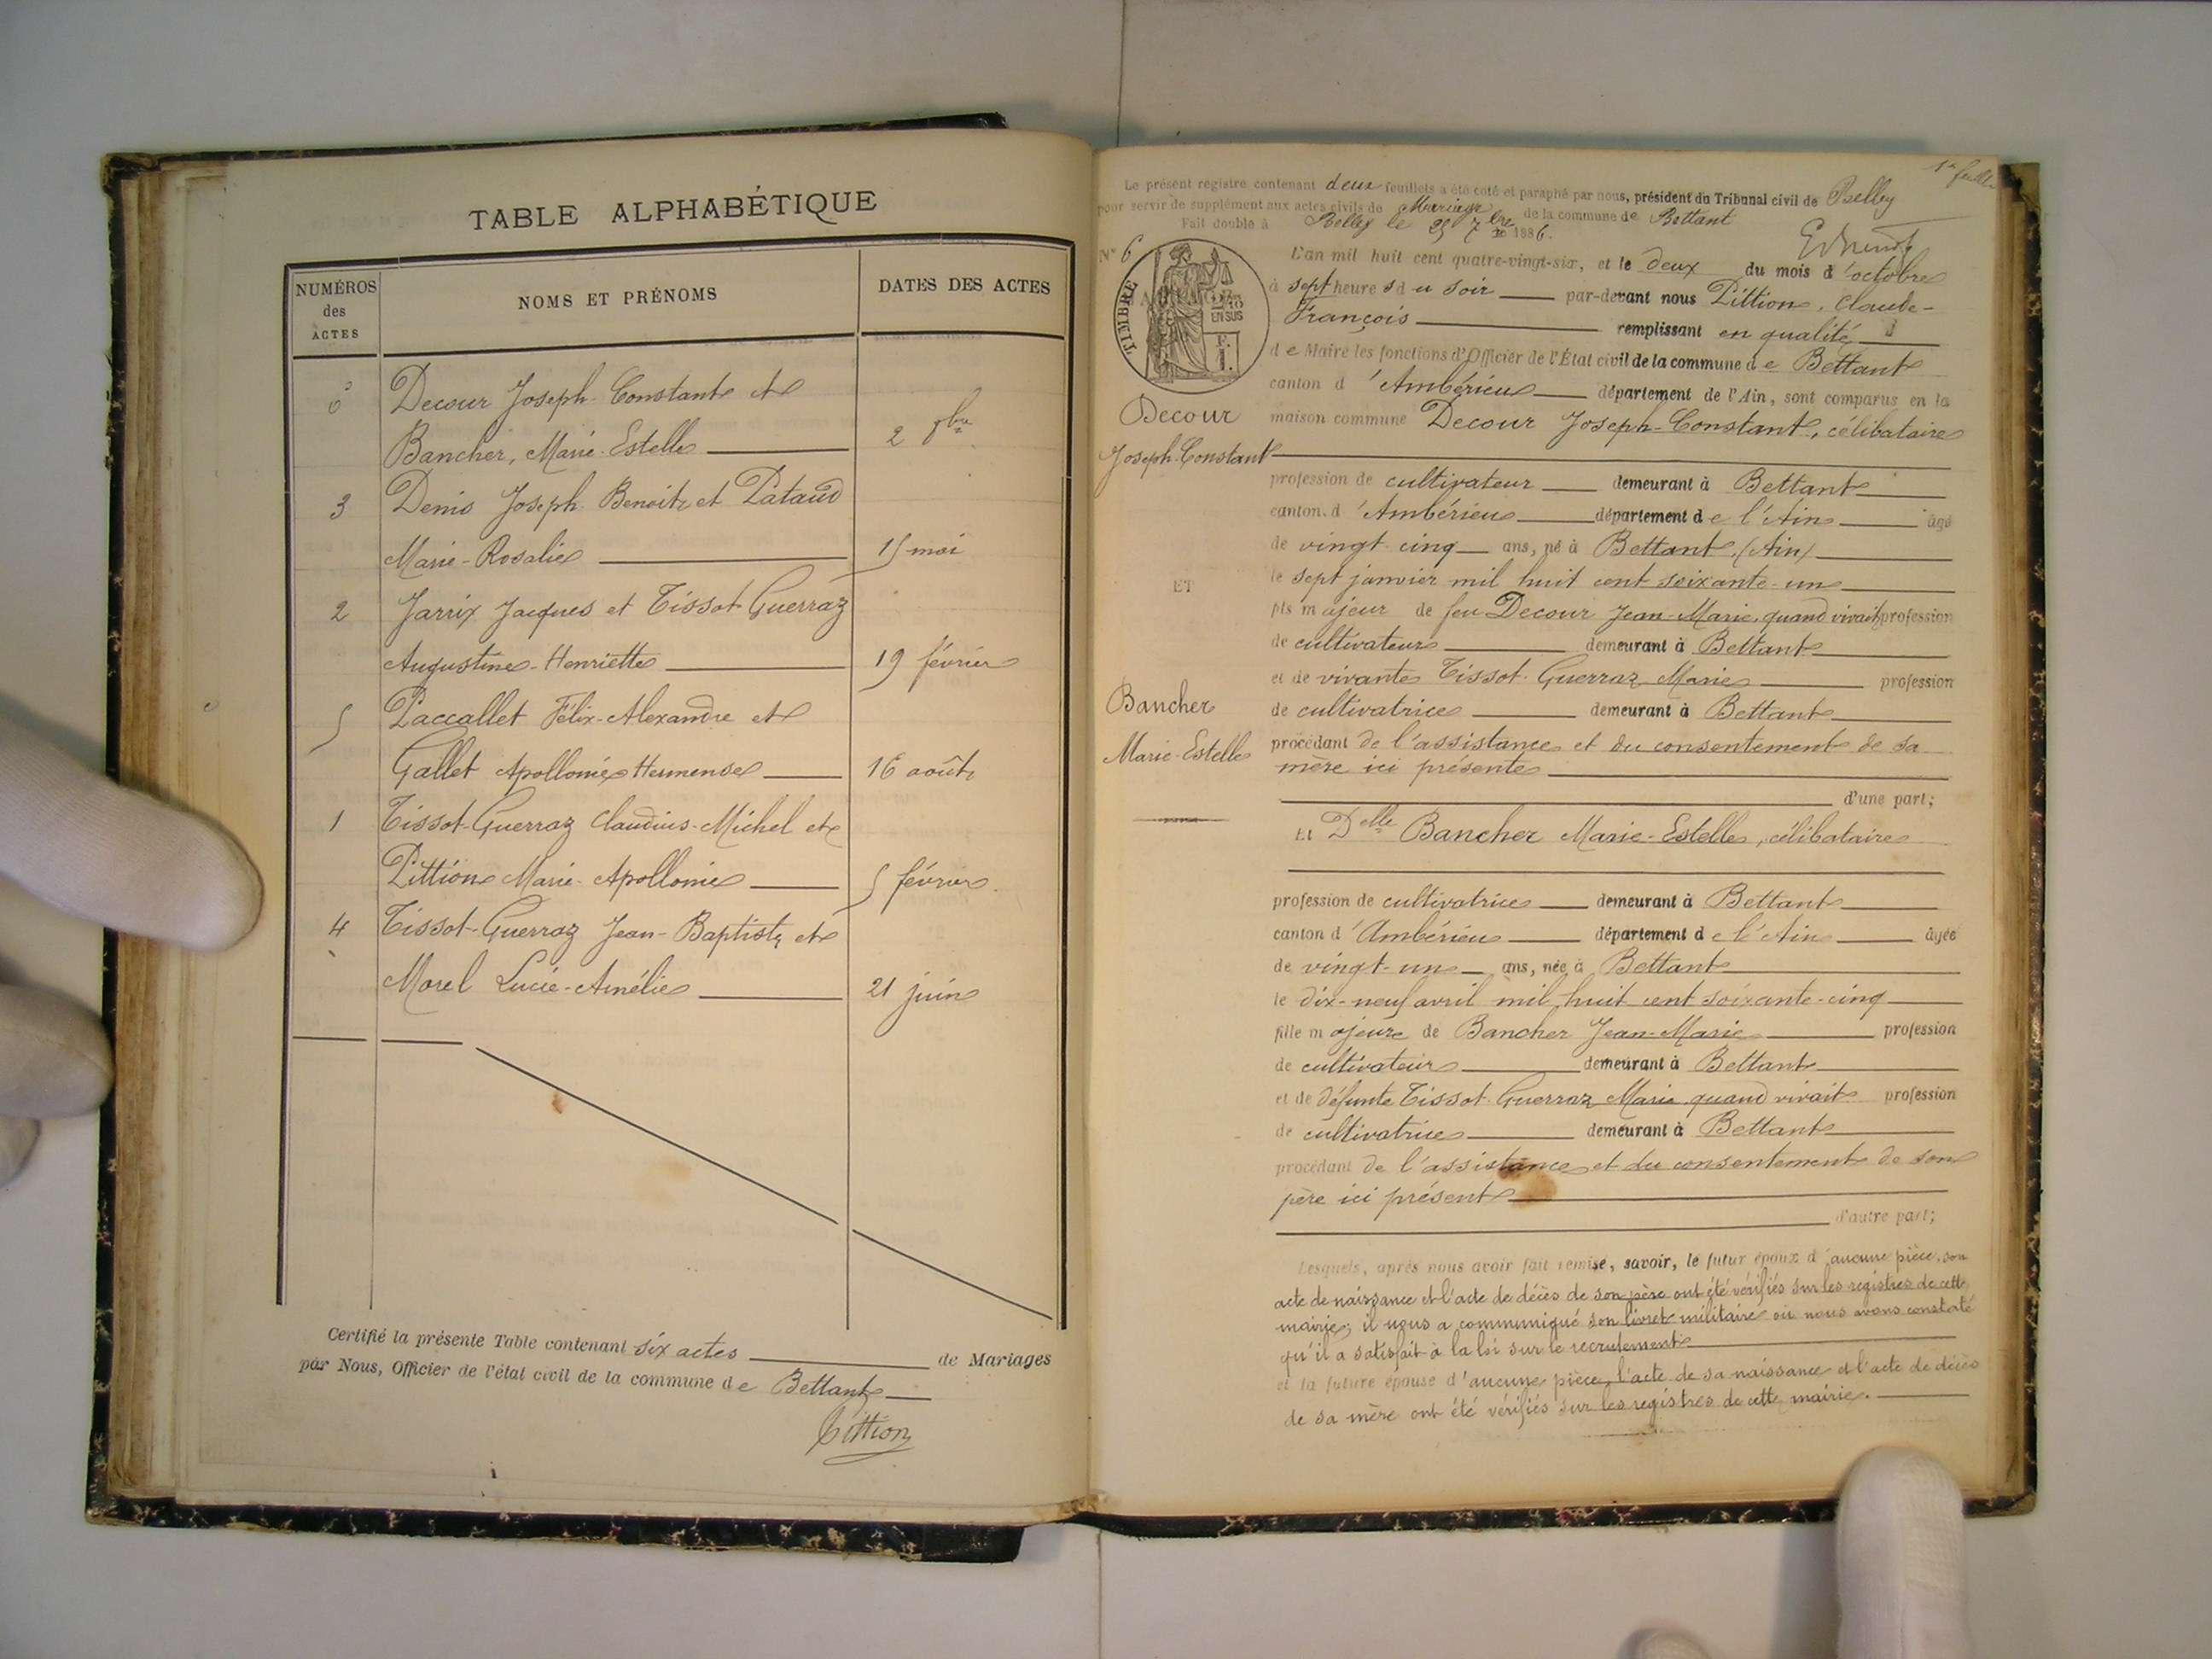 TABLE ALPHABÉTIQUE
NUMÉROS
des
ACTES
NOMS ET PRÉNOMS
DATES DES ACTES
6 Decour Joseph-Constant et
Bancher, Marie-Estelle 2 8bre
3 Denis Joseph Benoit et Pataud
Marie-Rosalie 15 mai
2 Jarrix Jacques et Tissot Guerraz
Augustine-Henriette 19 février
5 Paccallet Félix-Alexandre et
Gallet Apollonie Hermense 16 août
1 Tissot-Guerraz Claudius-Michel et
Pittion Marie-Apollonie 5 février
4 Tissot-Guerraz Jean-Baptiste et
Morel Lucie-Amélie 21 juin
Certifié la présente Table contenant six actes de Mariages
par Nous, Officier de l'état civil de la commune de Bettant
Pittion
1er feuillet
Le présent registre contenant deux feuillets a été coté et paraphé par nous, président du Tribunal civil de Belley
pour servir de supplément aux actes civils de Mariage de la commune de Bettant
Fait double à Belley le 25 7bre 1886.
N° 6
TIMBRE
EN SUS
F.
1.
L'an mil huit cent quatre-vingt-six, et le deux du mois d'octobre
à sept heures du soir par-devant nous Pittion, Claude-
François remplissant en qualité
de Maire les fonctions d'Officier de l'État civil de la commune de Bettant
canton d'Ambérieu département de l'Ain, sont comparus en la
maison commune Decour Joseph-Constant, célibataire
Decour
Joseph-Constant
profession de cultivateur demeurant à Bettant
canton d'Ambérieu département de l'Ain âgé
de vingt cinq ans, né à Bettant (Ain)
le sept janvier mil huit cent soixante-un
fils majeur de feu Decour Jean-Marie, quand vivait profession
de cultivateur demeurant à Bettant
et de vivante Tissot-Guerraz Marie profession
de cultivatrice demeurant à Bettant
procédant de l'assistance et du consentement de sa
mère ici présente
d'une part;
ET
Bancher
Marie-Estelle
Et Delle Bancher Marie-Estelle, célibataire
profession de cultivatrice demeurant à Bettant
canton d'Ambérieu département de l'Ain âgée
de vingt-un ans, née à Bettant
le dix-neuf avril mil huit cent soixante-cinq
fille majeure de Bancher Jean-Marie profession
de cultivateur demeurant à Bettant
et de défunte Tissot-Guerraz Marie quand vivait profession
de cultivatrice demeurant à Bettant
procédant de l'assistance et du consentement de son
père ici présent
d'autre part;
Lesquels, après nous avoir fait remise, savoir, le futur époux d'aucune pièce, son
acte de naissance et l'acte de décès de son père ont été vérifiés sur les registres de cette
mairie; il nous a communiqué son livret militaire où nous avons constaté
qu'il a satisfait à la loi sur le recrutement
et la future épouse d'aucune pièce, l'acte de sa naissance et l'acte de décès
de sa mère ont été vérifiés sur les registres de cette mairie.